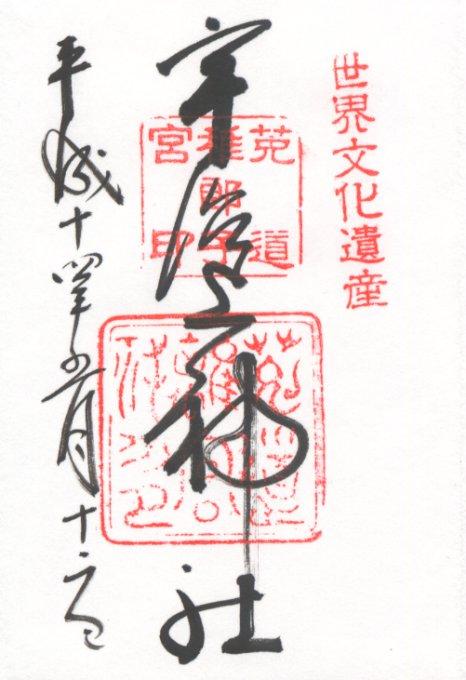 世界文化遺産
宇治上神社
菟道
稚郎子
宮印
平成十四年五月十日